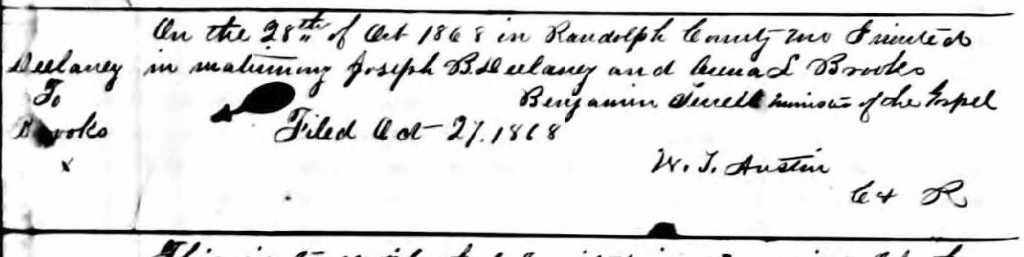 On the 28th of Oct 1868 in Randolph County Mo I united
Delaney in matrimony Joseph B. Delaney and Anna L Brooks
To Benjamin Terrell minister of the Gospel
Brooks Filed Oct 27. 1868
x W. T. Austin
C & R